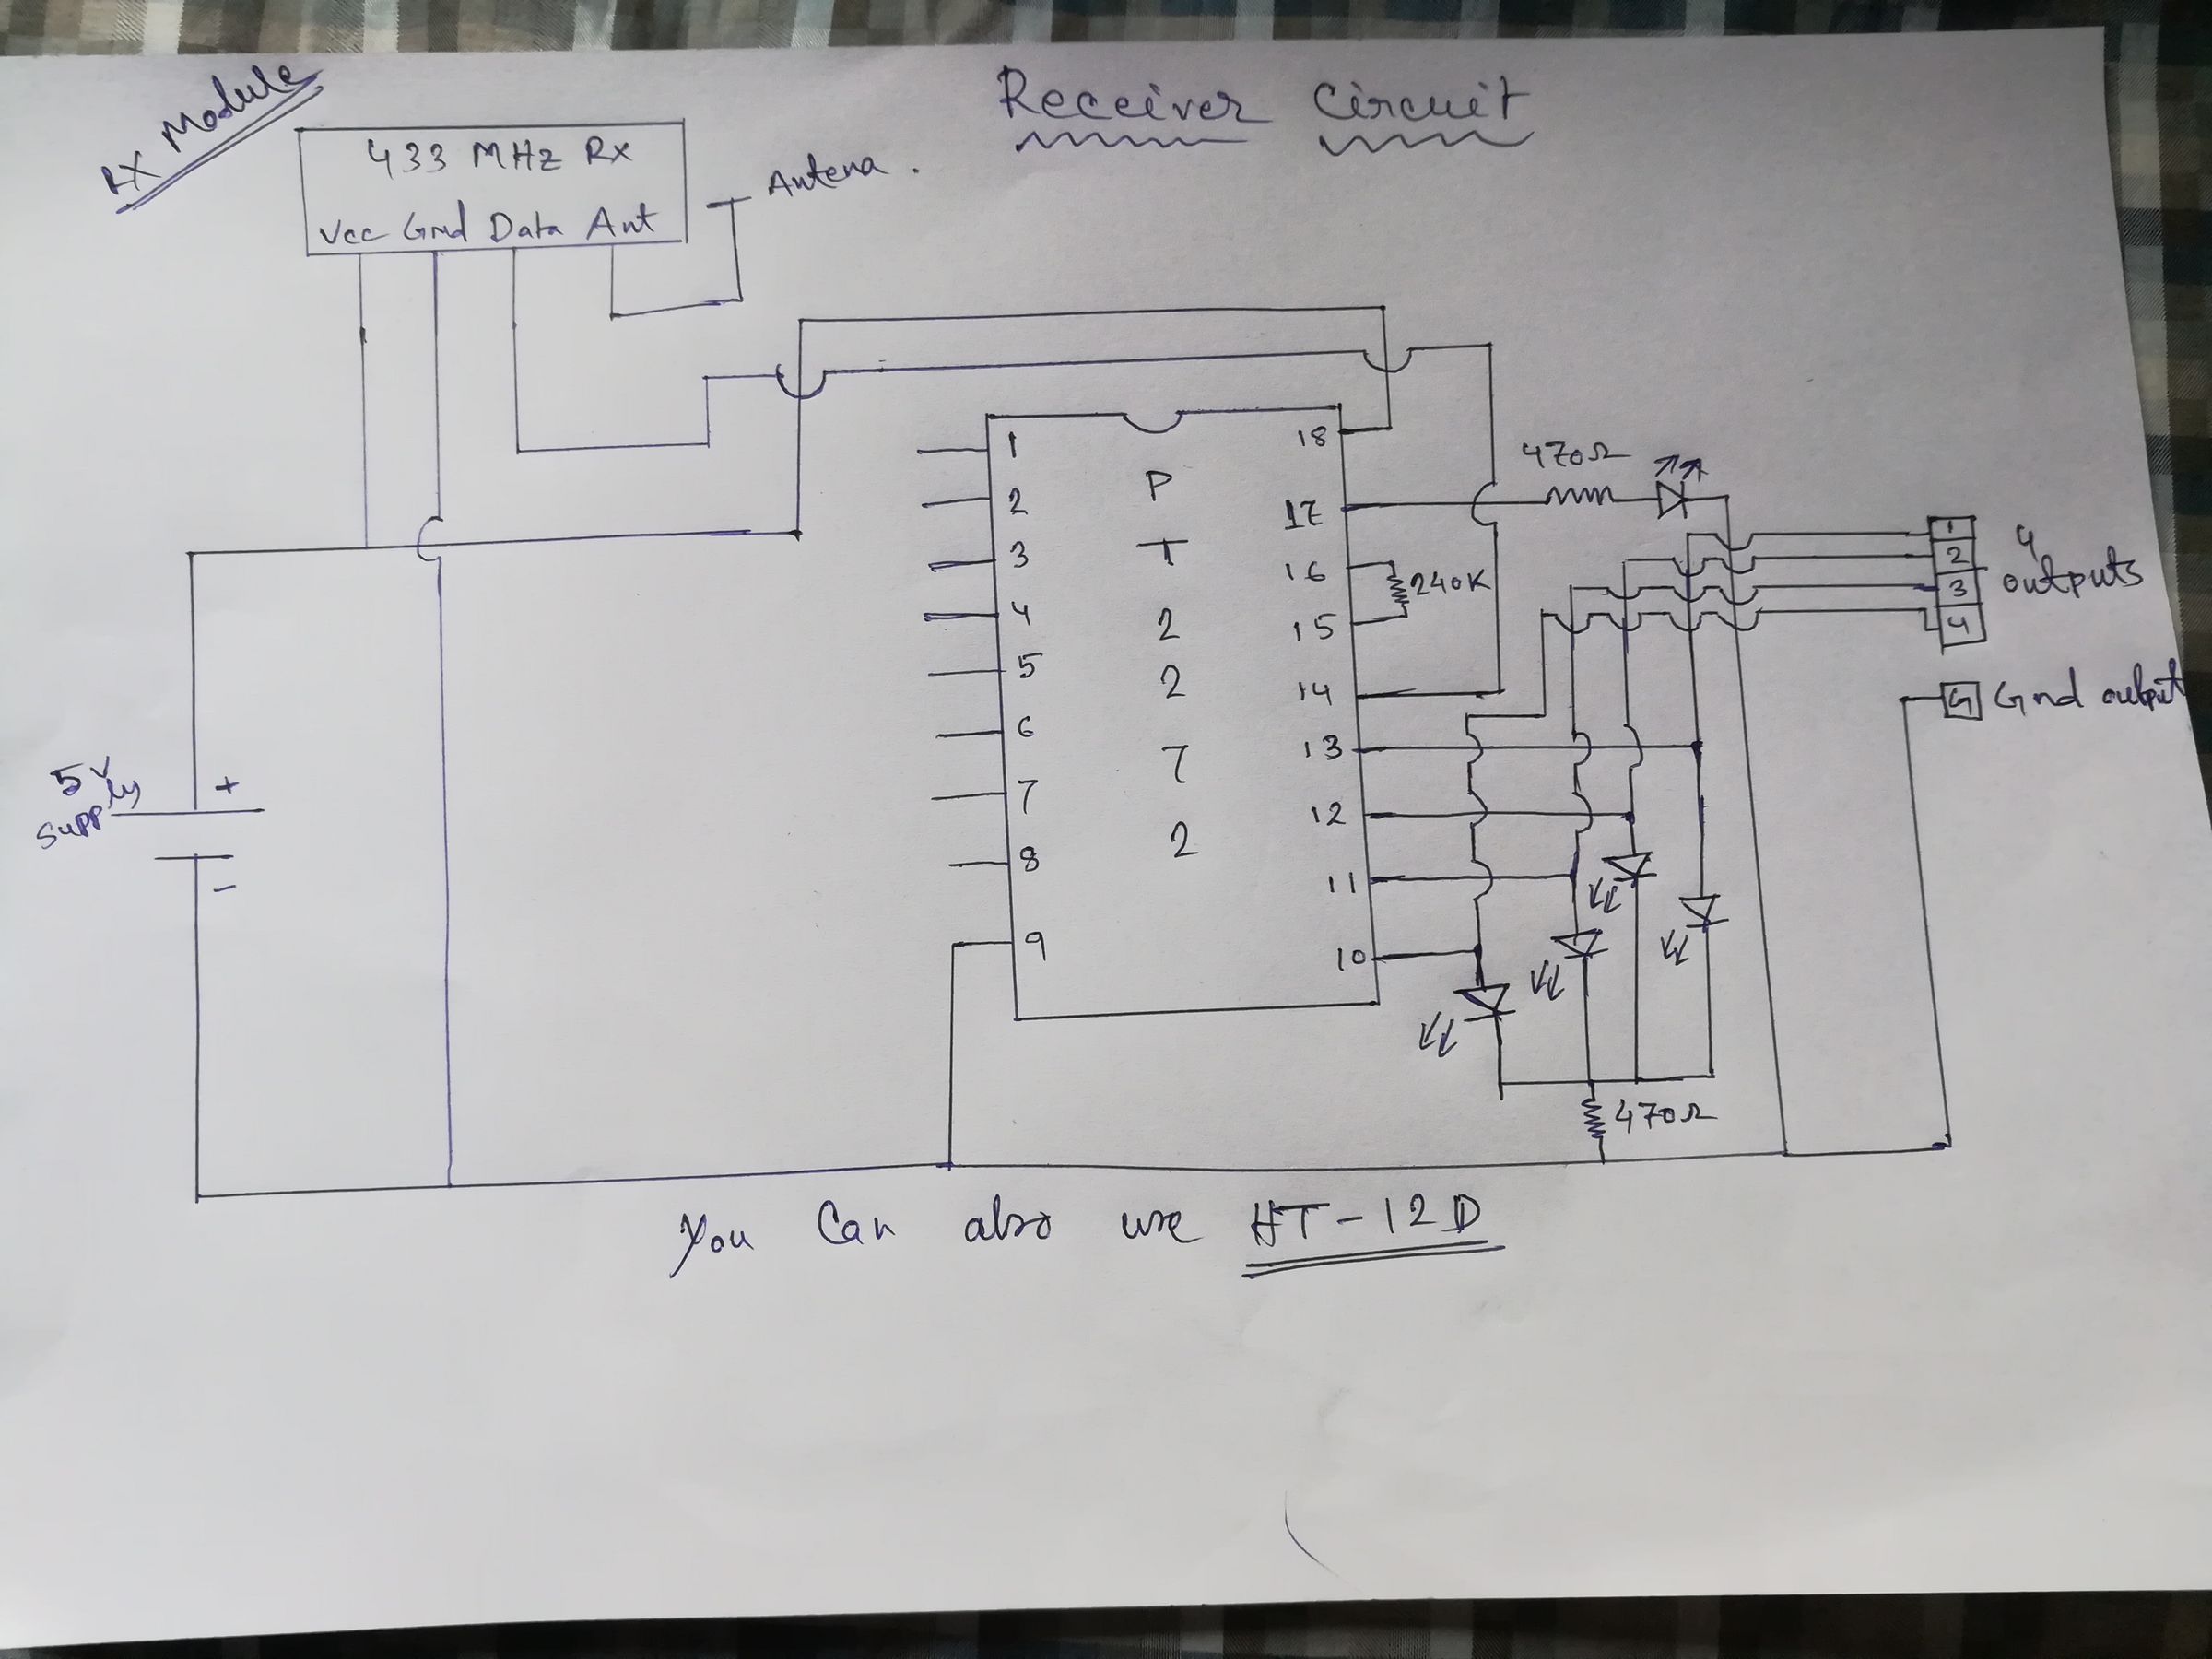 RX Module
Receiver Circuit
433 MHz Rx
Vcc Gnd Data Ant
Antena .
5V
Supply
+
-
1
2
3
4
5
6
7
8
9
P
T
2
2
7
2
18
17
16
15
14
13
12
11
10
470Ω
240K
470Ω
1
2
3
4
4
outputs
G Gnd output
You Can also use HT-12D